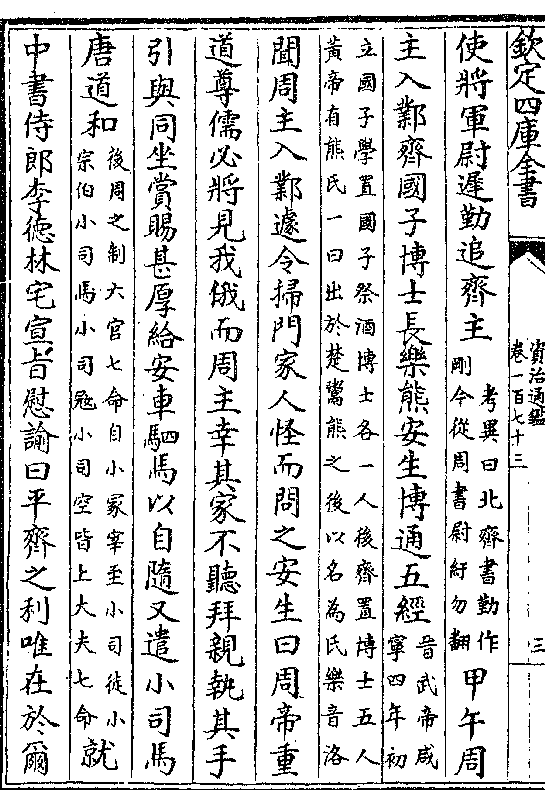 欽定四庫全書
資治通鑑
卷一百七十三
三
使將軍尉遲勤追齊主
考異曰北齊書勤作
剛今從周書尉紆勿翻
甲午周
主入鄴齊國子博士長樂熊安生博通五經
晉武帝咸
寧四年初
立國子學置國子祭酒博士各一人後齊置博士五人
黃帝有熊氏一曰出於楚鬻熊之後以名為氏樂音洛
聞周主入鄴遽令掃門家人怪而問之安生曰周帝重
道尊儒必將見我俄而周主幸其家不聽拜親執其手
引與同坐賞賜甚厚給安車駟馬以自隨又遣小司馬
唐道和
後周之制六官七命自小冢宰至小司徒小
宗伯小司馬小司寇小司空皆上大夫七命
就
中書侍郎李德林宅宣旨慰諭曰平齊之利唯在於爾